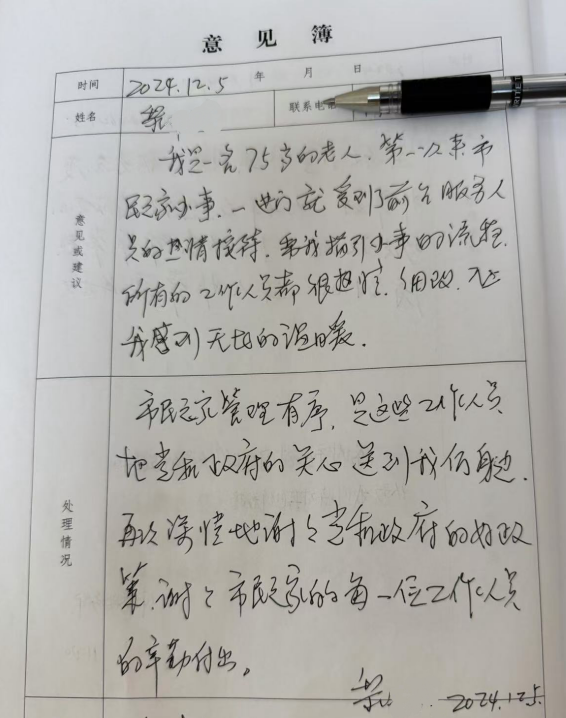 意见簿
时间 2024.12.5 年 月 日
姓名 联系电
意见或建议
我是一名75岁的老人,第一次来市
民之家办事,一进门就受到了前台服务人
员的热情接待,帮我指引办事的流程,
所有的工作人员都很热情,细致,
我感到无比的温暖。
处理情况
市民之家管理有序,是这些工作人员
把党和政府的关心送到我们身边,
再次深情地谢谢党和政府的好政
策,谢谢市民之家的每一位工作人员
的辛勤付出。
2024.12.5.